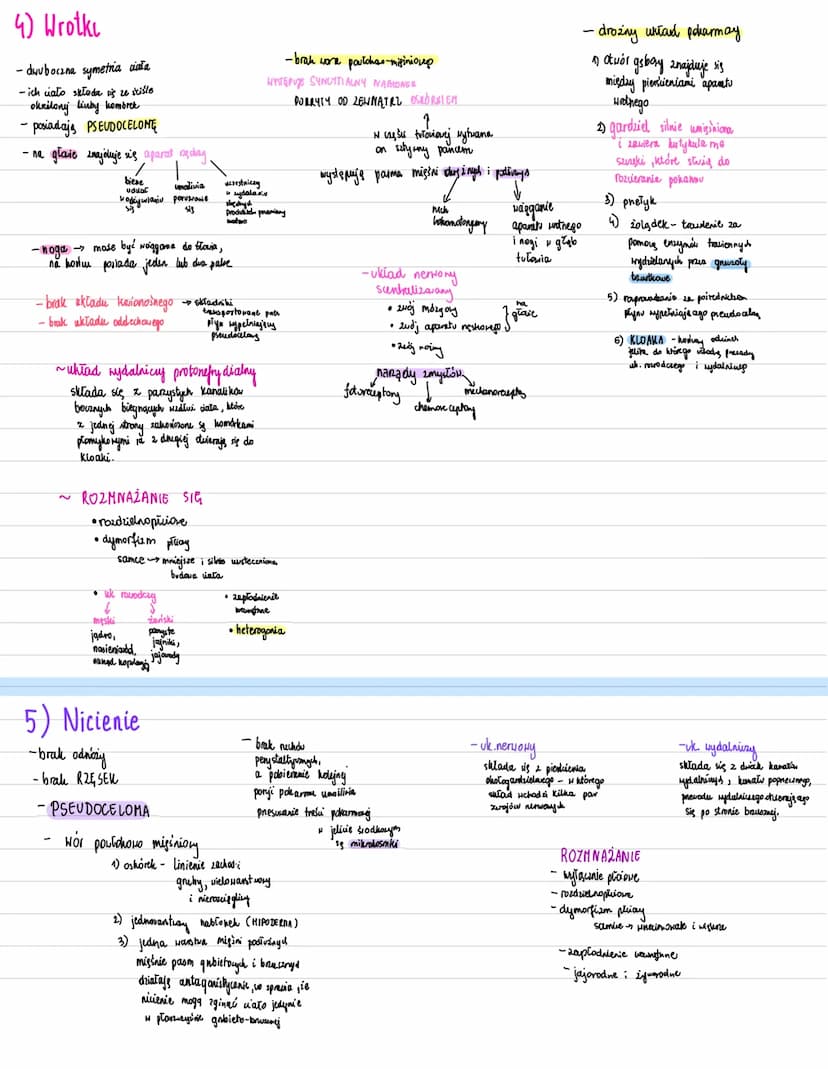 4) Wrotki
- dwuboczna symetria ciała
- ich ciało składa się ze ściśle
określonej liczby komórek
- posiadają PSEUDOCELOMĘ
- na głowie znajduje się aparat rzęsny
bierze
udział
w odżywianiu
się
umożliwia
poruszanie
się
uczestniczy
w wydalaniu
zbędnych
produktów przemiany
materii
- noga → może być wciągana do tułowia,
na końcu posiada jeden lub dwa palce
- brak układu krwionośnego → składniki
transportowane przez
płyn wypełniający
pseudocelomę
- brak układu oddechowego
~ układ wydalniczy protonefrydialny
składa się z parzystych kanalików
bocznych biegnących wzdłuż ciała, które
z jednej strony zakończone są komórkami
płomykowymi a z drugiej otwierają się do
kloaki.
~ ROZMNAŻANIE SIĘ
• rozdzielnopłciowe
• dymorfizm płciowy
samce → mniejsze i silnie uwsteczniona
budowa ciała
• uk rozrodczy
męski
jądro,
nasieniowód,
narząd kopulacyjny
żeński
parzyste
jajniki,
jajowody
• zapłodnienie
wewnętrzne
• heterogonia
- brak wora powłokowo-mięśniowego
WYSTĘPUJE SYNCYTIALNY NABŁONEK
POKRYTY OD ZEWNĄTRZ OSKÓRKIEM
w części tułowiowej wytwarza
on sztywny pancerz
występują pasma mięśni okrężnych i podłużnych
ruch
lokomotoryczny
wciąganie
aparatu wrotnego
i nogi w głąb
tułowia
- układ nerwowy
scentralizowany
• zwój mózgowy
• zwój aparatu rzęskowego
} na
głowie
• zwój nożny
narządy zmysłów
fotoreceptory
chemoreceptory
mechanoreceptory
- drożny układ pokarmowy
1) otwór gębowy znajduje się
między pierścieniami aparatu
wrotnego
2) gardziel silnie umięśniona
i zawiera kutykularne
szczęki, które służą do
rozcierania pokarmu
3) przełyk
4) żołądek - trawienie za
pomocą enzymów trawiennych
wydzielanych przez gruczoły
trzustkowe
5) rozprowadzanie za pośrednictwem
płynu wypełniającego pseudocelomę
6) KLOAKA - końcowy odcinek
jelita do którego uchodzą przewody
uk. rozrodczego i wydalniczego
5) Nicienie
- brak odnóży
- brak RZĘSEK
- PSEUDOCELOMA
- Wór powłokowo mięśniowy
1) oskórek - linienie zachodzi
gruby, wielowarstwowy
i nierozciągliwy
2) jednowarstwowy nabłonek (HIPODERMA)
3) jedna warstwa mięśni podłużnych
mięśnie pasm grzbietowych i brzusznych
działają antagonistycznie, co sprawia, że
nicienie mogą zginać ciało jedynie
w płaszczyźnie grzbieto-brzusznej
- brak ruchów
perystaltycznych,
a pobieranie kolejnej
porcji pokarmu umożliwia
przesuwanie treści pokarmowej
w jelicie środkowym
są mikrokosmki
- uk. nerwowy
składa się z pierścienia
okołogardzielowego - z którego
skład wchodzi kilka par
zwojów nerwowych
- uk. wydalniczy
składa się z dwóch kanałów
wydalniczych, kanału poprzecznego,
przewodu wydalniczego otwierającego
się po stronie brzusznej.
ROZMNAŻANIE
- wyłącznie płciowe
- rozdzielnopłciowe
- dymorfizm płciowy
samice → większe
- zapłodnienie wewnętrzne
- jajorodne i żyworodne